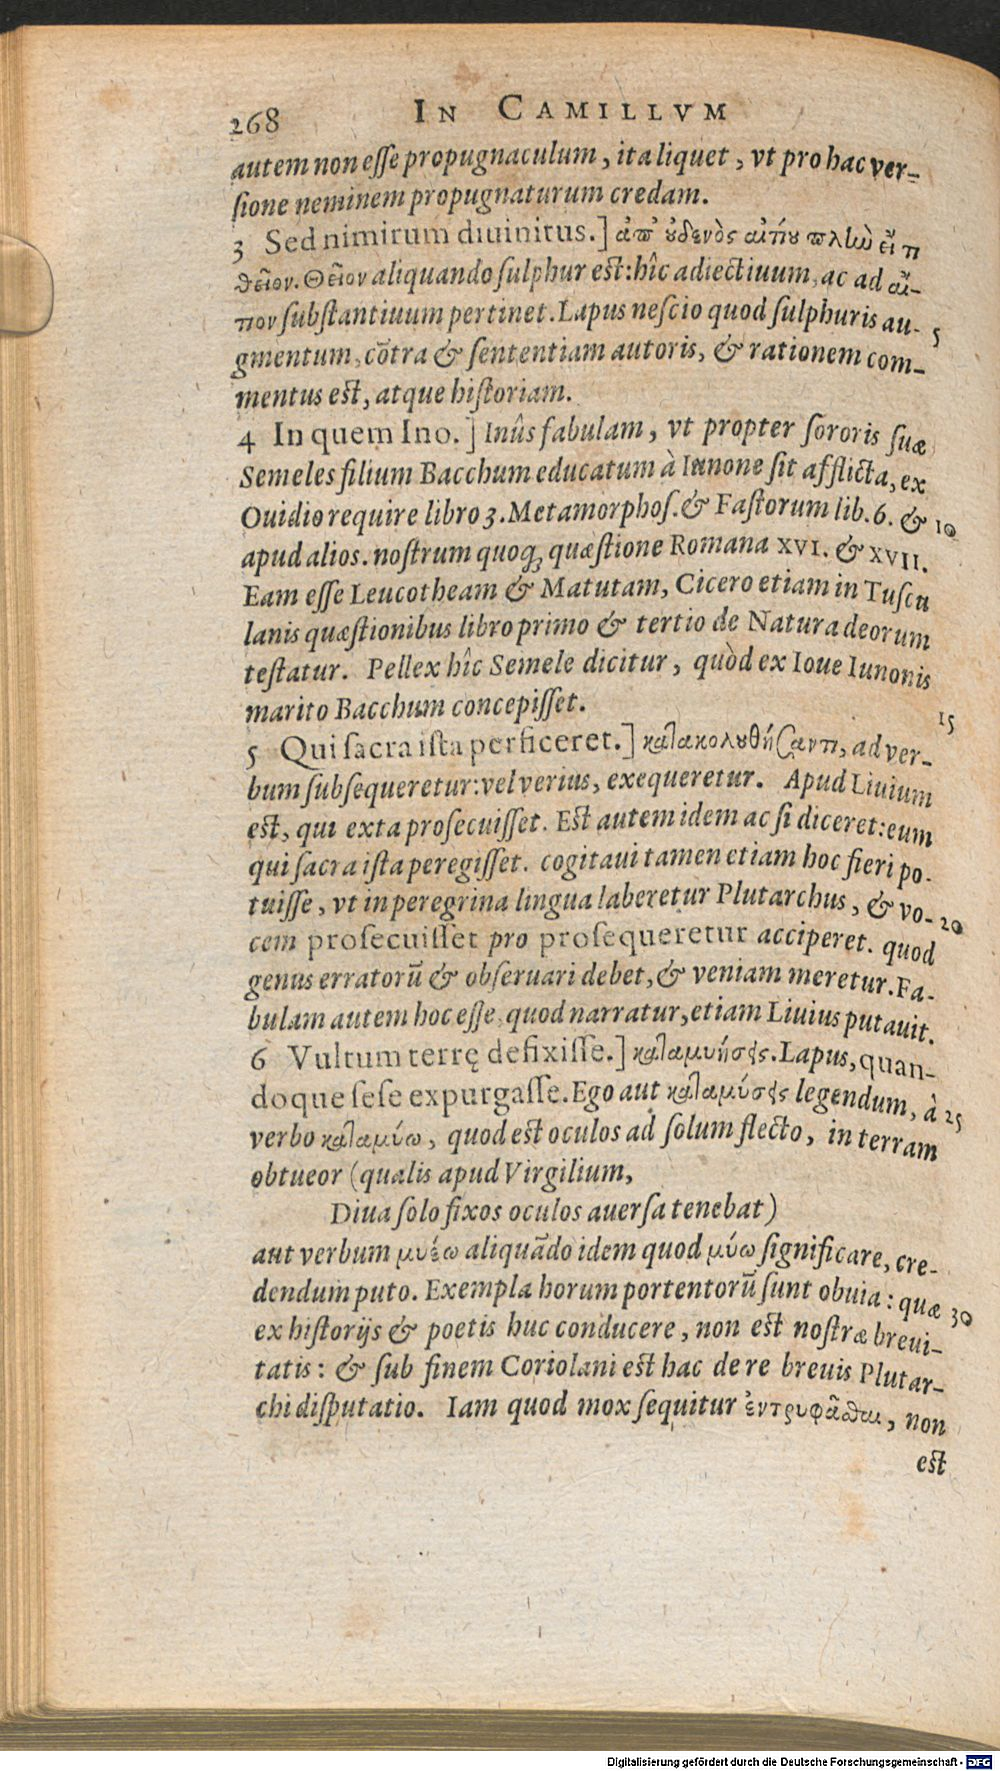 268 IN CAMILLVM
autem non esse propugnaculum, ita liquet, vt pro hac ver-
sione neminem propugnaturum credam.
3 Sed nimirum diuinitus.] ἀπ' οὐδενὸς αἰτίου πλὴν εἴ τι
θεῖον. Θεῖον aliquando sulphur est: hîc adiectiuum, ac ad αἴ-
τιον substantiuum pertinet. Lapus nescio quod sulphuris au- 5
gmentum, cõtra & sententiam autoris, & rationem com-
mentus est, atque historiam.
4 In quem Ino.] Inûs fabulam, vt propter sororis suæ
Semeles filium Bacchum educatum à Iunone sit afflicta, ex
Ouidio require libro 3. Metamorphos. & Fastorum lib. 6. & 10
apud alios. nostrum quoq; quæstione Romana XVI. & XVII.
Eam esse Leucotheam & Matutam, Cicero etiam in Tuscu
lanis quæstionibus libro primo & tertio de Natura deorum
testatur. Pellex hîc Semele dicitur, quòd ex Ioue Iunonis
marito Bacchum concepisset. 15
5 Qui sacra ista perficeret.] κατακολουθήσαντι, ad ver-
bum subsequeretur: vel verius, exequeretur. Apud Liuium
est, qui exta prosecuisset. Est autem idem ac si diceret: eum
qui sacra ista peregisset. cogitaui tamen etiam hoc fieri po-
tuisse, vt in peregrina lingua laberetur Plutarchus, & vo- 20
cem prosecuisset pro prosequeretur acciperet. quod
genus erratorũ & obseruari debet, & veniam meretur. Fa-
bulam autem hoc esse, quod narratur, etiam Liuius putauit.
6 Vultum terrę defixisse.] καταμυήσεις. Lapus, quan-
doque sese expurgasse. Ego aut καταμύσεις legendum, à 25
verbo καταμύω, quod est oculos ad solum flecto, in terram
obtueor (qualis apud Virgilium,
Diua solo fixos oculos auersa tenebat)
aut verbum μυέω aliquãdo idem quod μύω significare, cre-
dendum puto. Exempla horum portentorũ sunt obuia: quæ 30
ex historijs & poetis huc conducere, non est nostræ breui-
tatis: & sub finem Coriolani est hac de re breuis Plutar-
chi disputatio. Iam quod mox sequitur ἐντρυφᾶσθαι, non
est
Digitalisierung gefördert durch die Deutsche Forschungsgemeinschaft - DFG